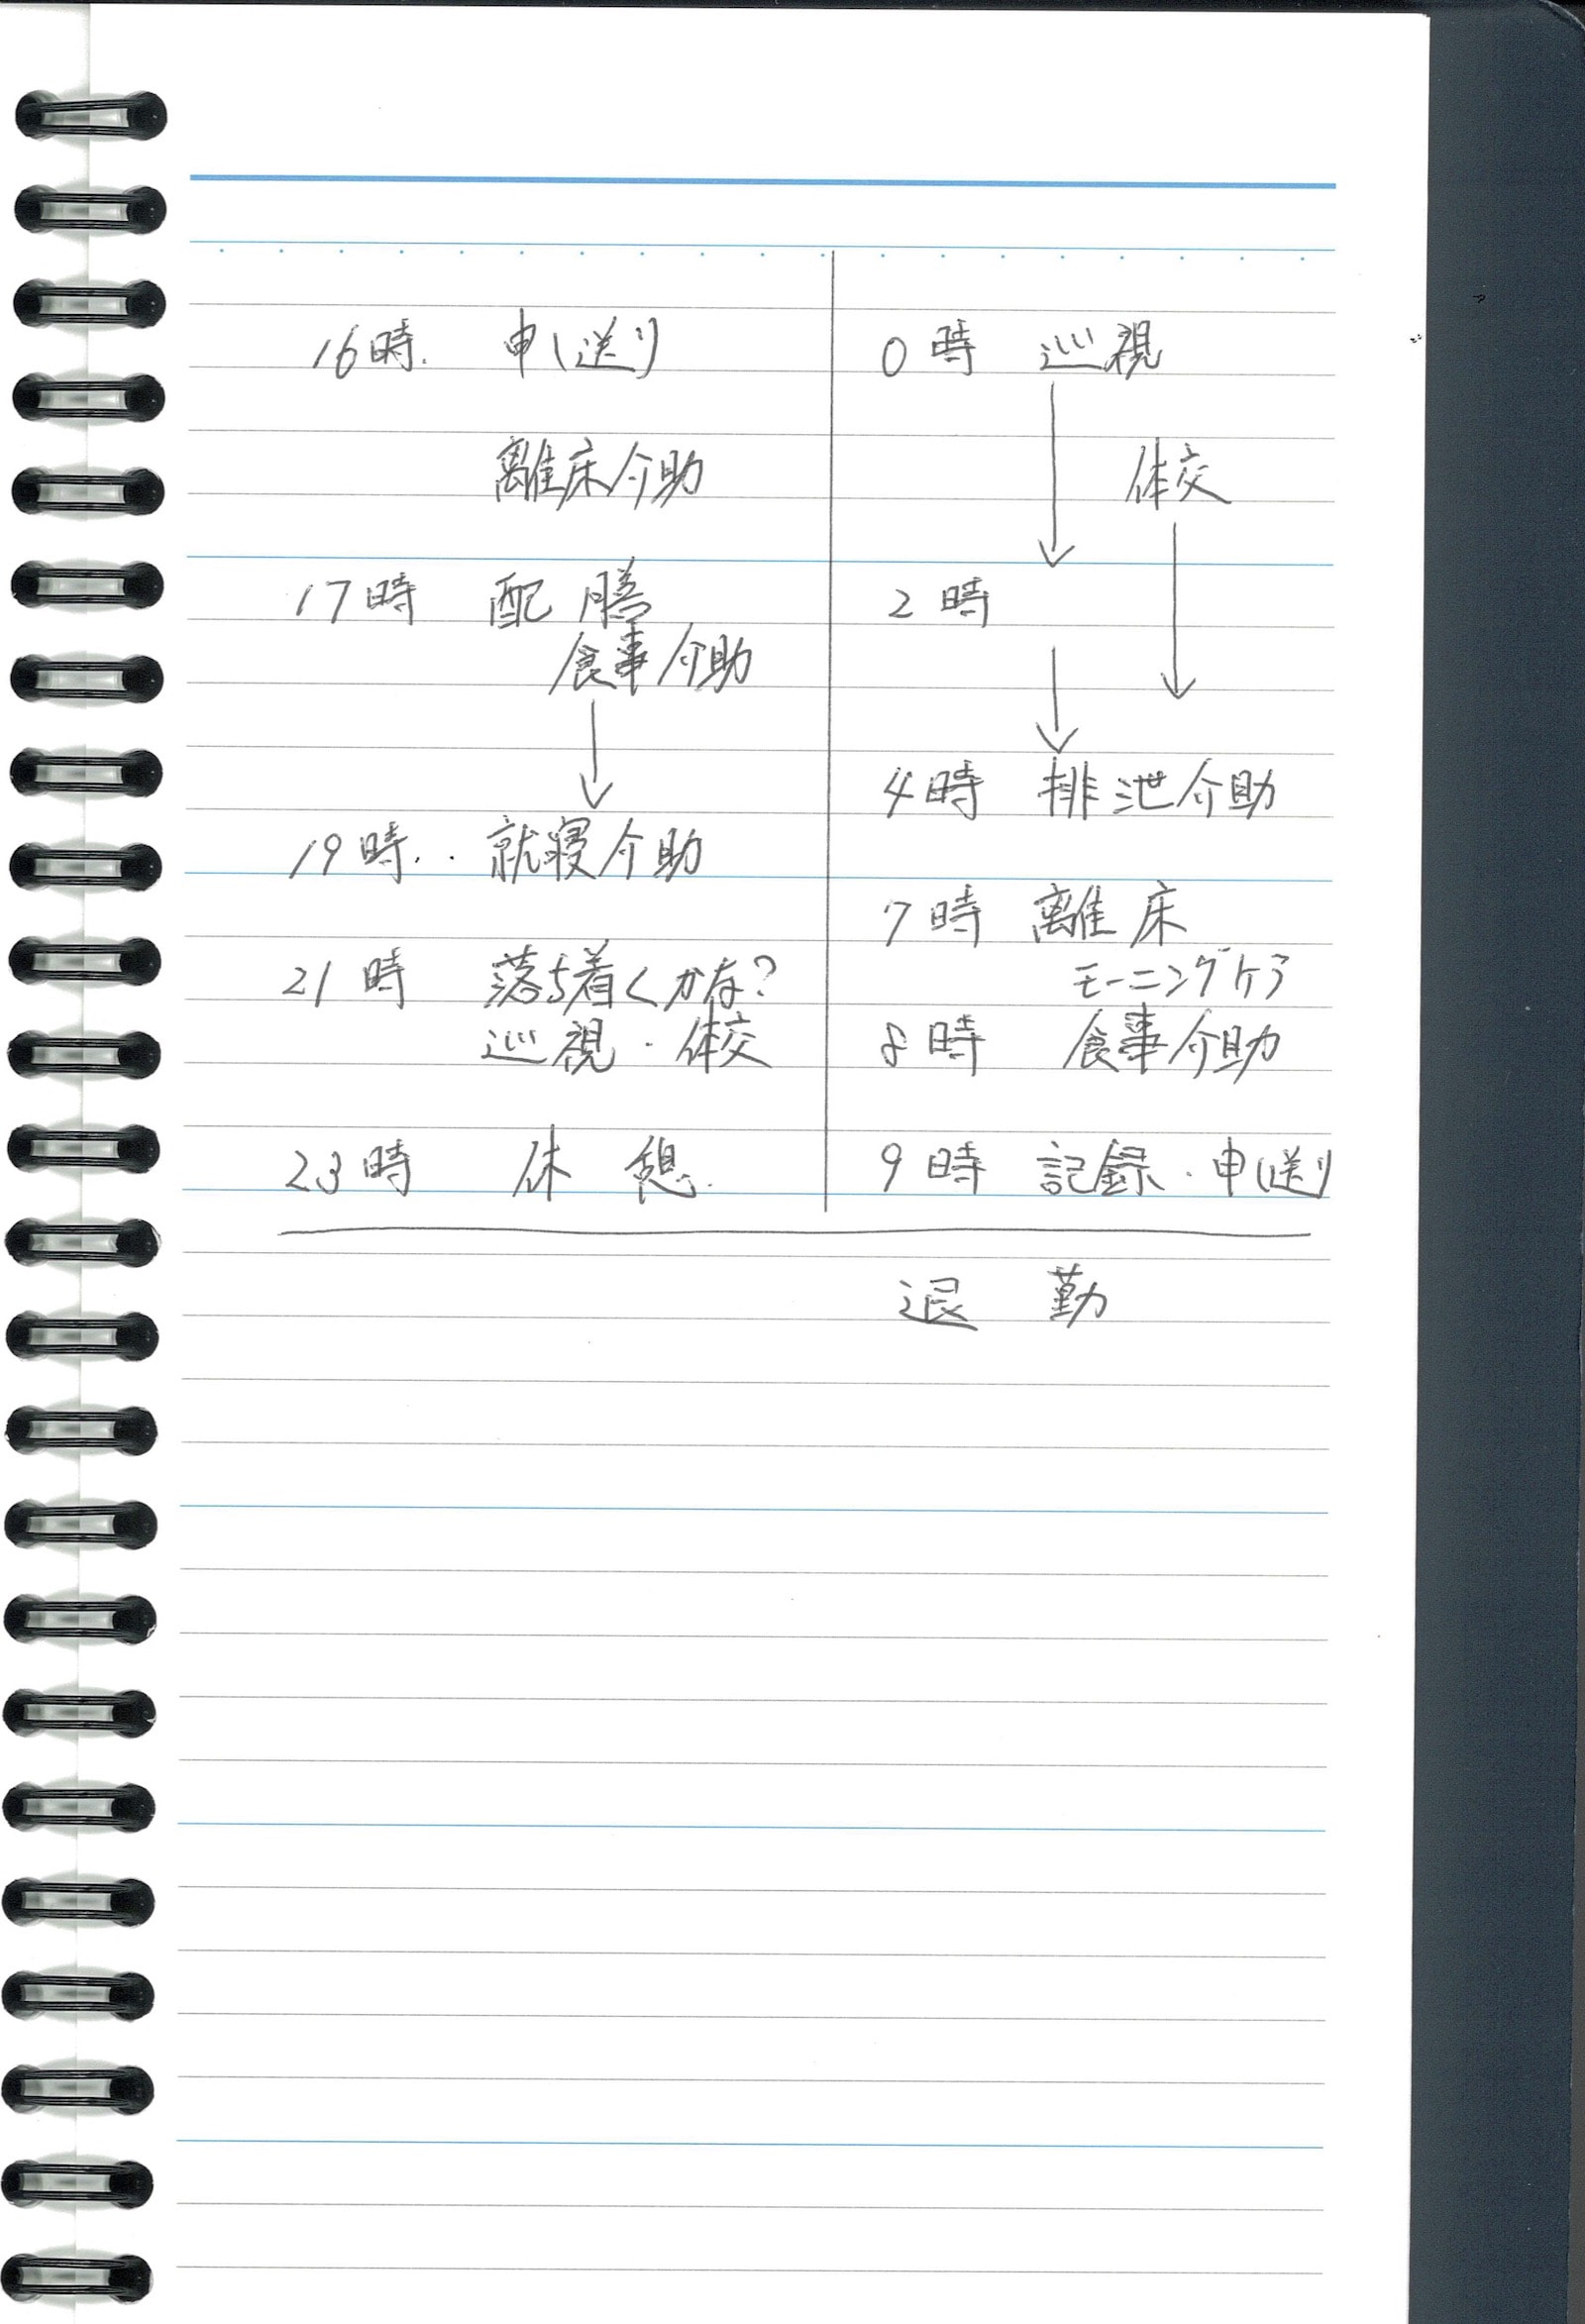 16時. 申し送り
離床介助
17時 配膳
食事介助
↓
19時.. 就寝介助
21時 落ち着くかな?
巡視・体交
23時 休憩.
0時 巡視
↓ 体交
2時
↓ ↓
4時 排泄介助
7時 離床
モーニングケア
8時 食事介助
9時 記録・申し送り
退勤